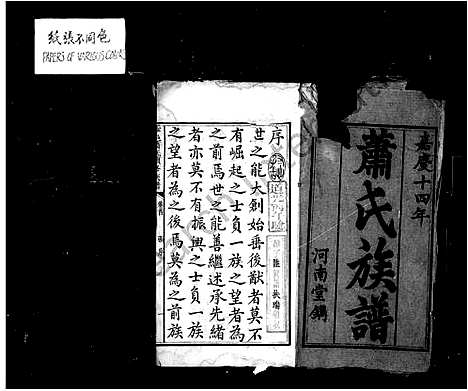 紙張不同色
PAPERS OF VARIOUS COLOR
嘉慶十四年
蕭氏族譜
河南堂鐫
序
世之能大創始垂後猷者莫不
有崛起之士負一族之望者為
之前焉世之能善繼述承先緒
者亦莫不有振興之士負一族
之望者為之後焉莫為之前族